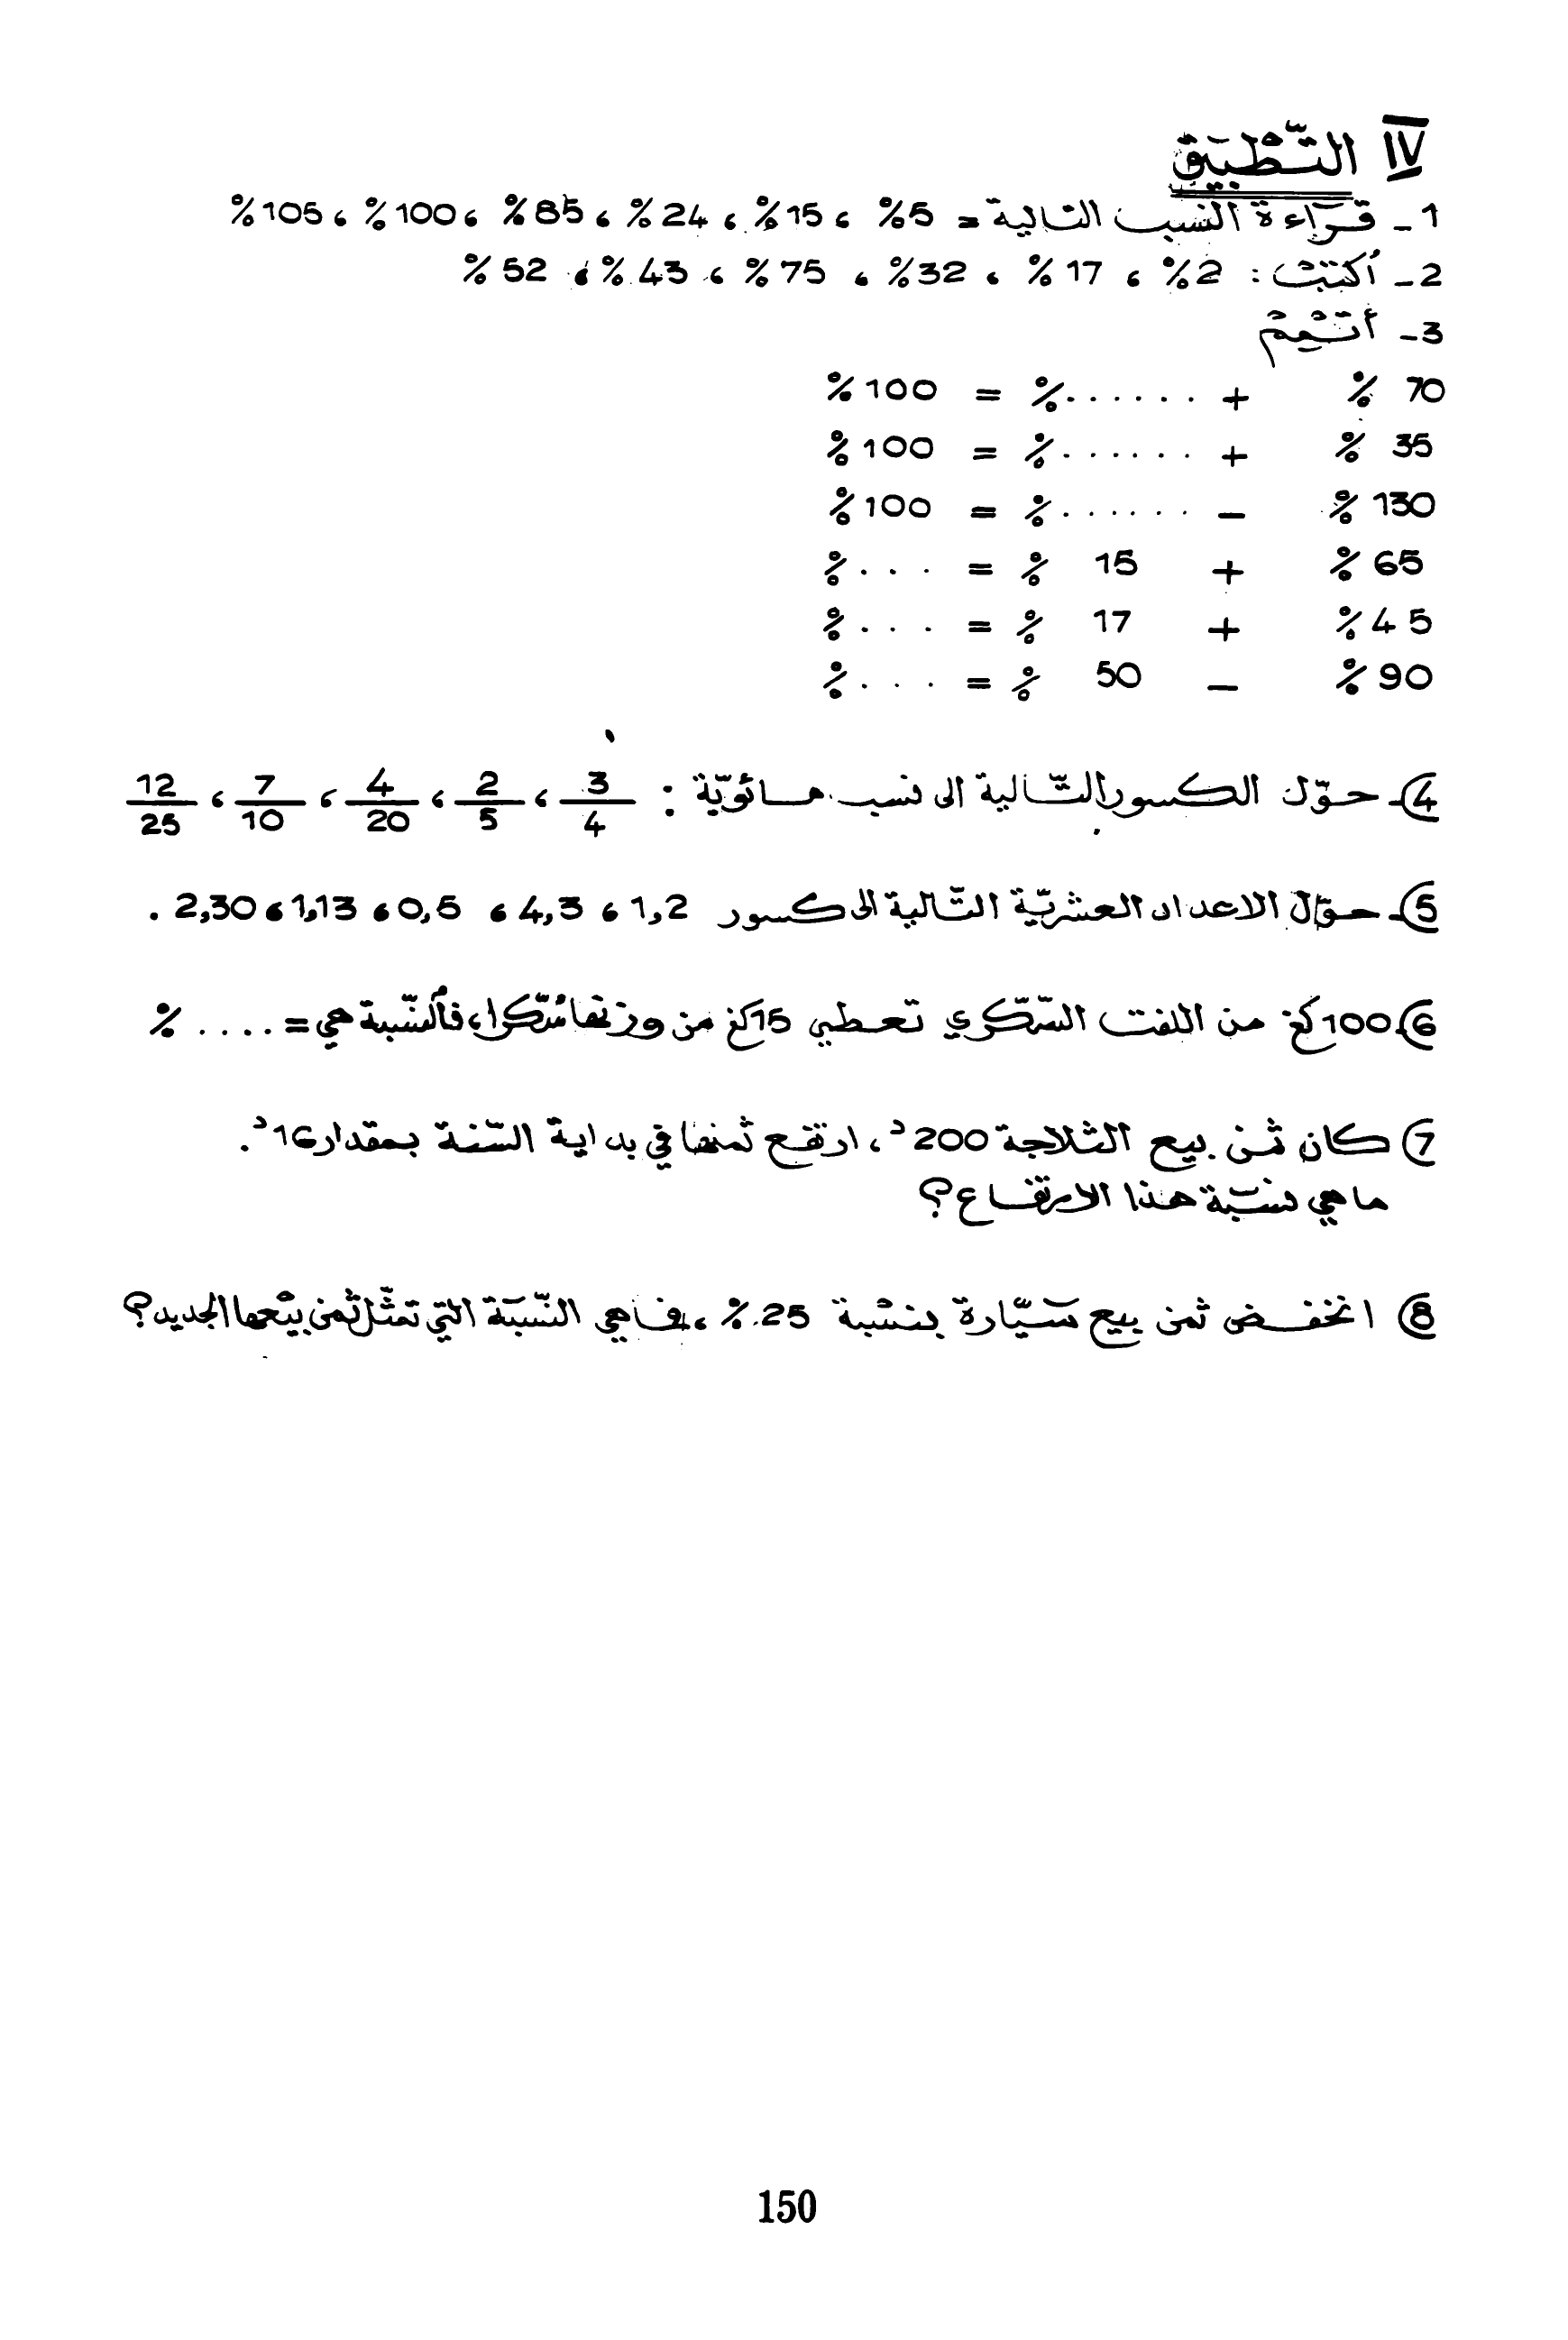 IV التّطبيق
1 - قراءة النسب التالية = 5% ، 15% ، 24% ، 85% ، 100% ، 105%
2 - أكتب : 2% ، 17% ، 32% ، 75% ، 43% ، 52%
3 - أتمم
70 % + ......% = 100%
35 % + ......% = 100%
130 % - ......% = 100%
65 % + 15 % = ...%
45 % + 17 % = ...%
90 % - 50 % = ...%
4) حوّل الكسور التّالية الى نسب مائويّة : 3/4 ، 2/5 ، 4/20 ، 7/10 ، 12/25
5) حوّل الاعداد العشريّة التّالية الى كسور 1,2 ، 4,3 ، 0,5 ، 1,13 ، 2,30 .
6) 100 كغ من اللفت السّكّري تعطي 15 كغ من وزنها سُكّرا، فالنّسبة هي = .... %
7) كان ثمن بيع الثلاجة 200 د ، ارتفع ثمنها في بداية السّنة بمقدار 16 د .
ما هي نسبة هذا الارتفاع ؟
8) انخفض ثمن بيع سيّارة بنسْبة 25 % ، فما هي النّسبة التي تمثّل ثمن بيْعها الجديد ؟
150